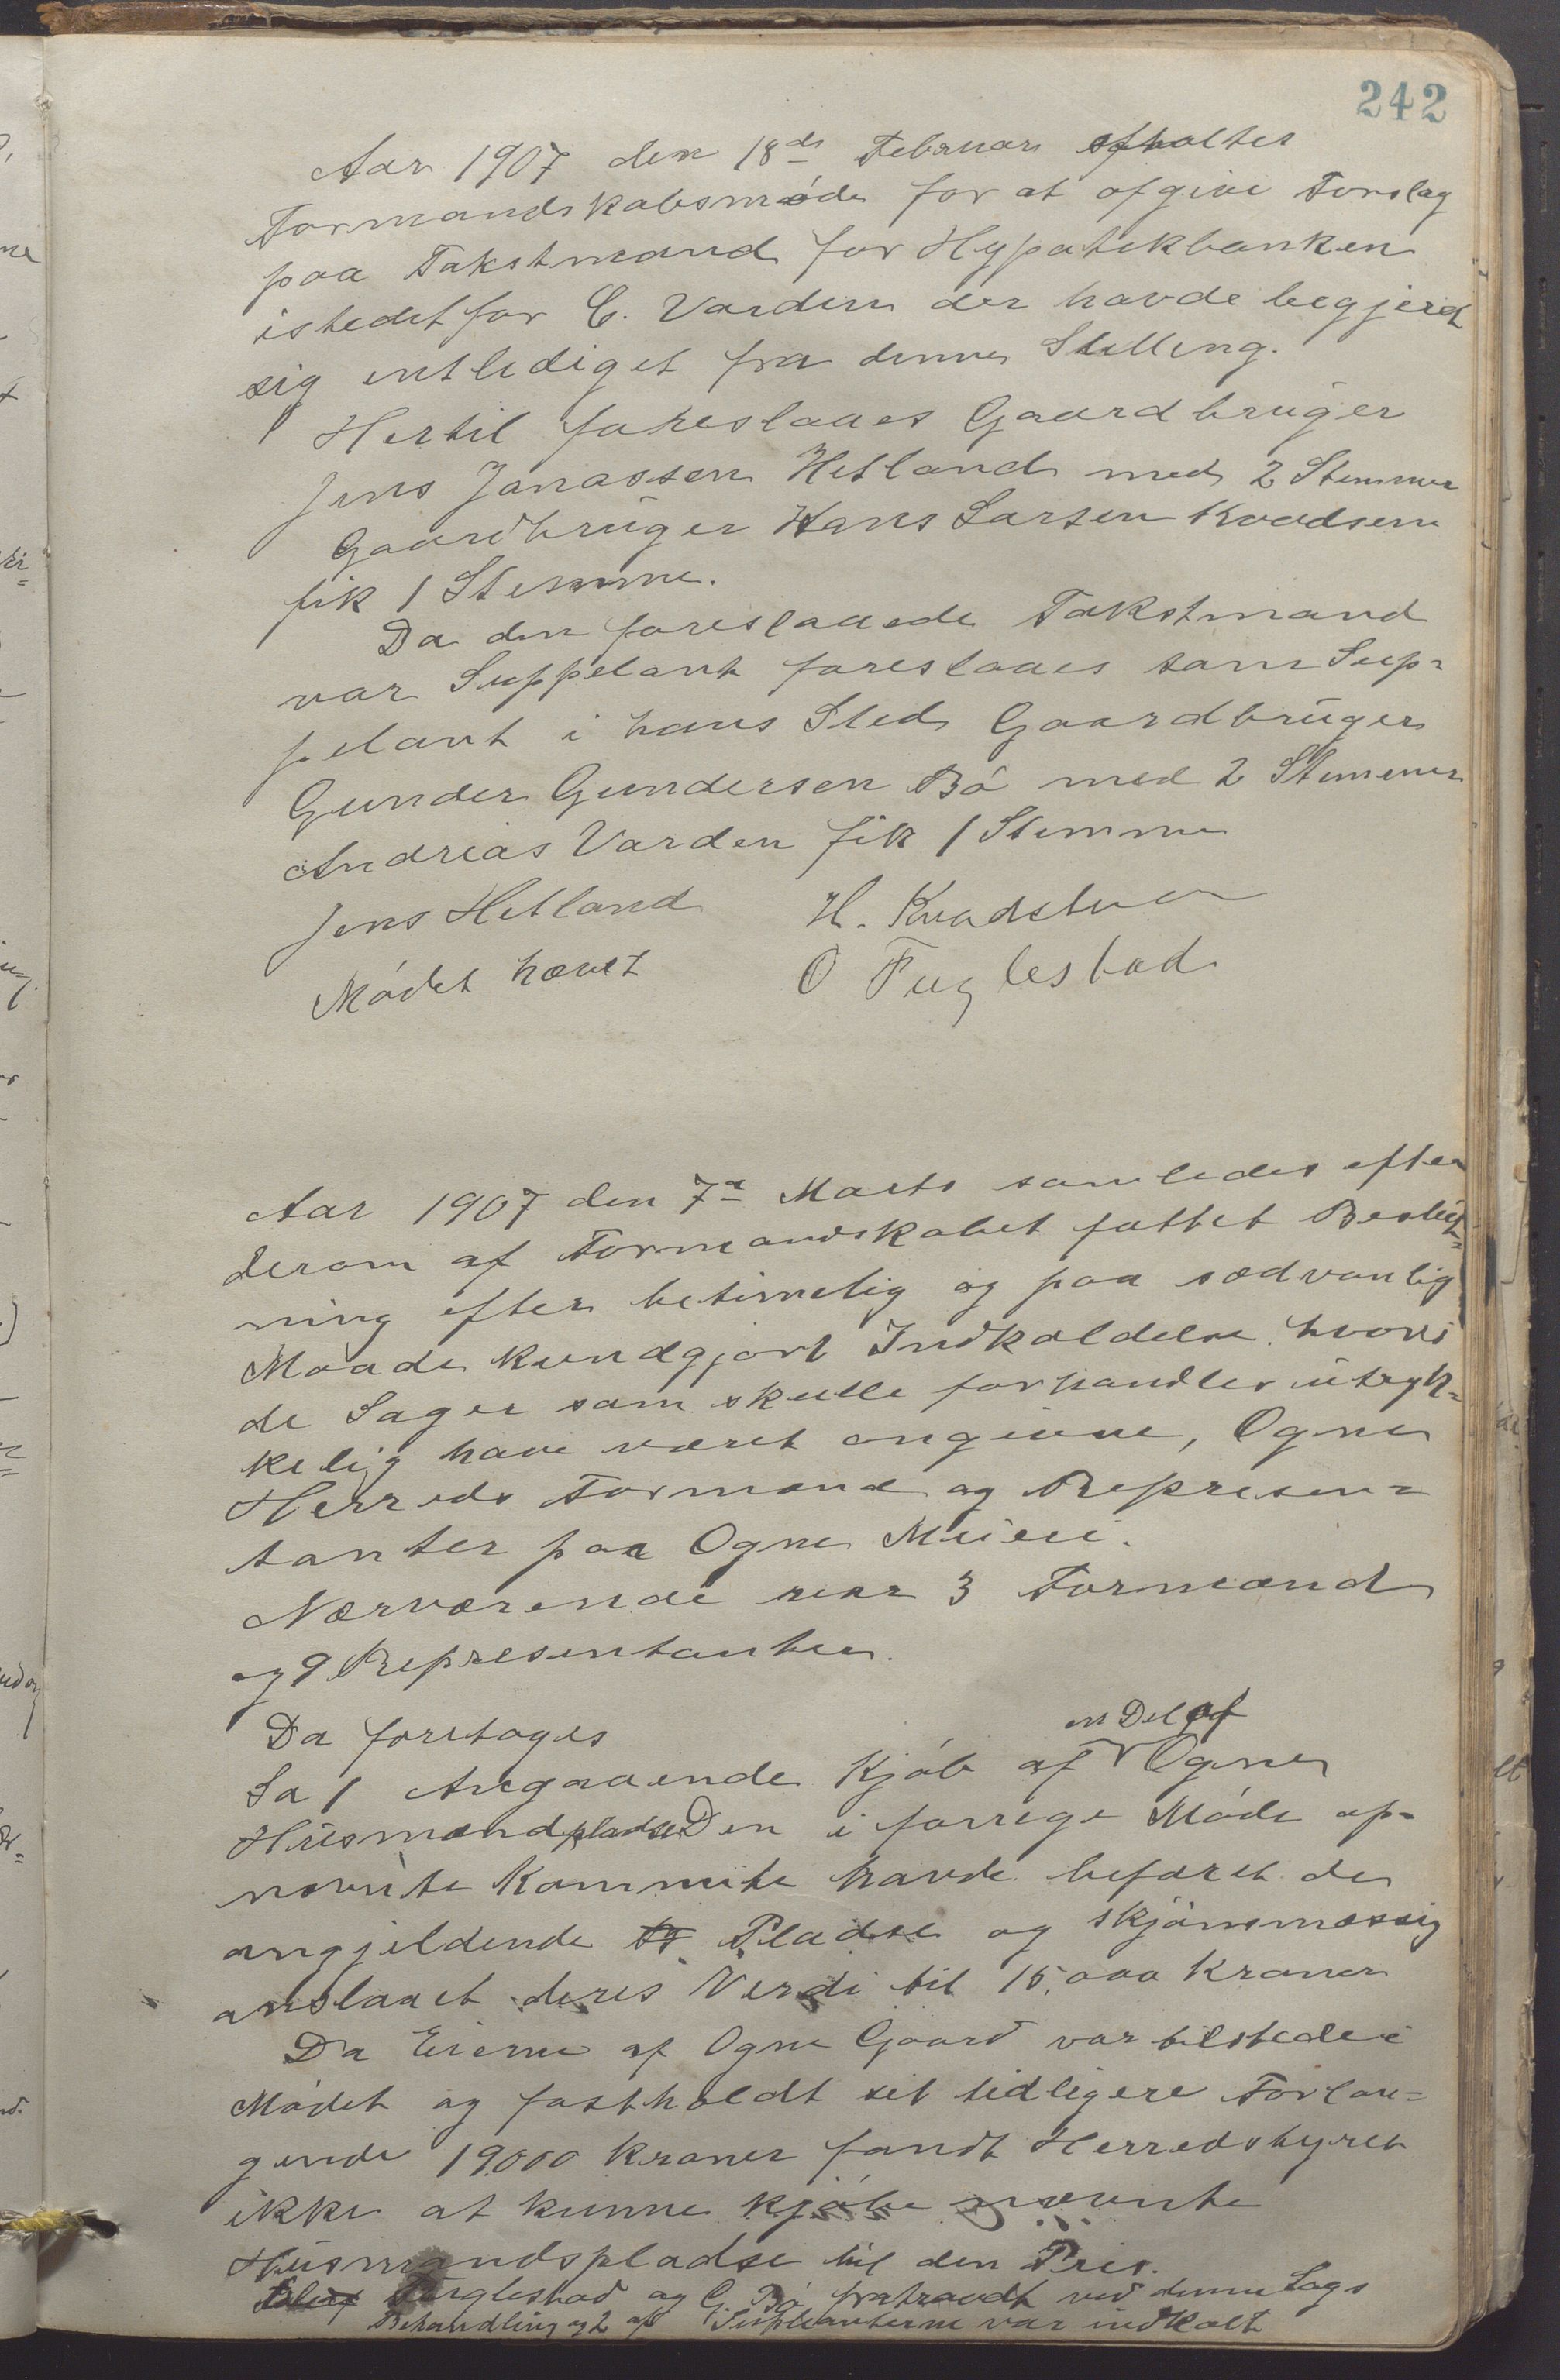 242
Aar 1907 den 18de Februar afholtes
Formandskabsmøde for at afgive Forslag
paa Takstmand for Hypotekbanken
istedetfor C. Varden der havde begjeret
sig entlediget fra denne Stilling.
Hertil foreslaaes Gaardbruger
Jens Jonassen Hetland med 2 Stemmer
Gaardbruger Hans Larsen Kvadsem
fik 1 Stemme.
Da den foreslaaede Takstmand
var Suppelant foreslaaes som Sup-
pelant i hans Sted Gaardbruger
Gunder Gundersen Bø med 2 Stemmer
Andreas Varden fik 1 Stemme
Jens Hetland H.
Mødet hævet O Fuglestad
Aar 1907 den 7de Marts samledes efter
derom af Formandskabet fattet Beslut=
ning efter betimelig og paa sædvanlig
Maade kundgjort Indkaldelse hvori
de Sager som skulle forhandles utryk=
kelig have været angivne, Ogne
Herreds Formænd og Represen=
tanter paa Ogne Meieri.
Nærværende var 3 Formænd
og 9 Representanter.
Da foretoges
en Del af
Sa 1 Angaaende Kjøb af Ogne
Husmandpladse Den i forrige Møde op-
nævnte Kommite havde befaret de
angjeldende Pladse og skjønsmæssig
anslaaet deres Verdi til 15,000 Kroner
Da Eierne af Ogne Gaard var tilstede i
Mødet og fastholdt sit tidligere Forlan=
gende 19000 Kroner fandt Herredstyret
ikke at kunne kjøbe nævnte
Husmandspladse til den Pris.
Fuglestad og G. Bø fratraadt ved denne Sags
Behandling og 2 af Supleanterne var indkalt